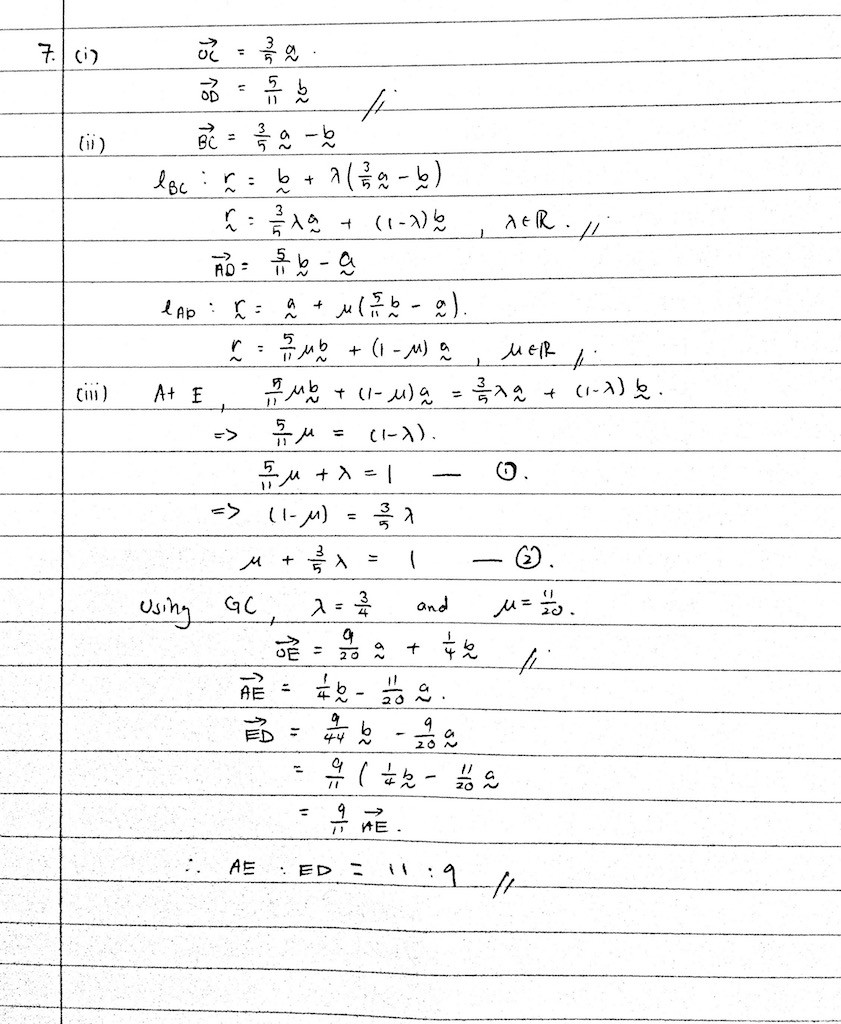 7. (i) →OC = 3/5 a̰ .
→OD = 5/11 b̰ //
(ii) →BC = 3/5 a̰ - b̰
l_BC : r̰ = b̰ + λ(3/5 a̰ - b̰)
r̰ = 3/5 λa̰ + (1-λ)b̰ , λ∈ℝ. //
→AD = 5/11 b̰ - a̰
l_AD : r̰ = a̰ + μ(5/11 b̰ - a̰).
r̰ = 5/11 μb̰ + (1-μ) a̰ , μ∈ℝ //
(iii) At E , 5/11 μb̰ + (1-μ)a̰ = 3/5 λa̰ + (1-λ) b̰ .
=> 5/11 μ = (1-λ).
5/11 μ + λ = 1 — ①.
=> (1-μ) = 3/5 λ
μ + 3/5 λ = 1 — ②.
Using GC, λ = 3/4 and μ = 11/20.
→OE = 9/20 a̰ + 1/4 b̰ //
→AE = 1/4 b̰ - 11/20 a̰ .
→ED = 9/44 b̰ - 9/20 a̰
= 9/11 ( 1/4 b̰ - 11/20 a̰
= 9/11 →AE .
∴ AE : ED = 11 : 9 //